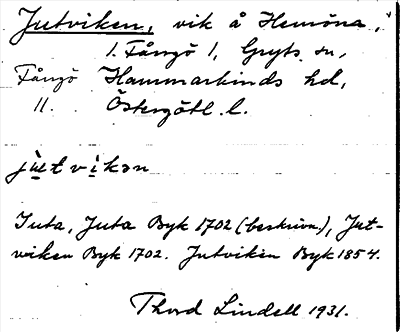 Jutviken, vik å Hemöna,
1. Fångö 1, Gryts sn,
Fångö Hammarkinds hd,
11. Östergötl. l.
jutvikən
Juta, Juta Byk 1702 (beskrivn.), Jut-
viken Byk 1702. Jutviken Byk 1854.
Thord Lindell 1931.